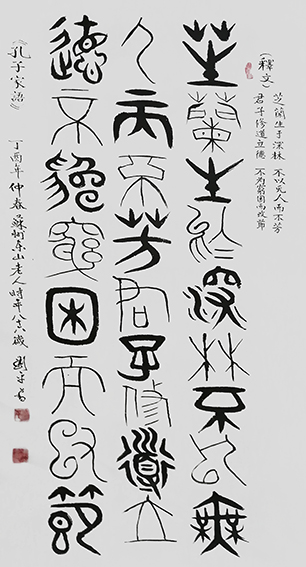 (釋文)
芝蘭生于深林 不以无人而不芳
君子修道立德 不为窮困而改節
芝蘭生於深林不以無
人而不芳君子修道立
德不為窮困而改節
《孔子家語》
丁酉年仲春蘇州东山老人時年八十六歲